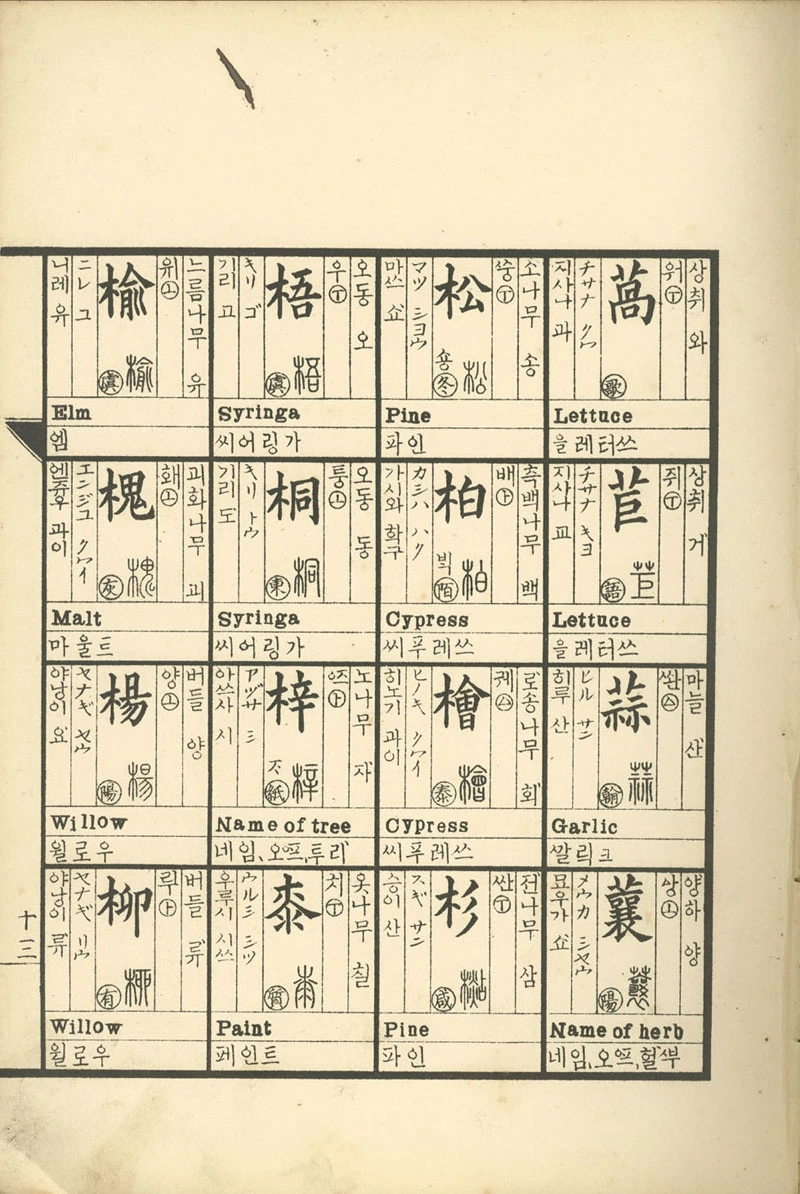 상취 와
워 ㊦
萵
歌
チサナ クワ
지사나 과
Lettuce
을레터쓰
상취 거
쥐 ㊦
苣
苣
語
チサナ キヨ
지사나 교
Lettuce
을레터쓰
마늘 산
蒜
蒜
翰
ヒル サン
히루 산
Garlic
깔릭크
양하 양
샹 ㊤
蘘
陽
メウカ シヤウ
묘우가 쇼
Name of herb
네임、오ᅋᅳ、헐부
소나무 송
쑹 ㊦
松
松
용
冬
マツ シヨウ
마쯔 쇼
Pine
파인
측백나무 백
배 ㊤
柏
柏
빅
陌
カシハ ハク
가시와 학구
Cypress
씨푸레쓰
로송나무 회
궤
檜
檜
泰
ヒノキ クワイ
히노기 과이
Cypress
씨푸레쓰
젼나무 삼
싼 ㊦
杉
咸
スギ サン
승이 산
Pine
파인
오동 오
우 ㊦
梧
梧
虞
キリ ゴ
기리 고
Syringa
씨어링가
오동 동
퉁 ㊤
桐
桐
東
キリ トウ
기리 도
Syringa
씨어링가
노나무 자
梓
梓
紙
アヅサ シ
아쓰사 시
Name of tree
네임、오ᅋᅳ、투리
옷나무 칠
치 ㊦
桼
質
ウルシ シツ
우루시 시쓰
Paint
페인트
느름나무 유
위 ㊤
楡
楡
虞
ニレ ユ
니레 유
Elm
엠
괴화나무 괴
홰 ㊤
槐
槐
灰
エンジユ クワイ
엔쥬우 과이
Malt
마울트
버들 양
양 ㊤
楊
楊
陽
ヤナギ ヤウ
야낭이 요
Willow
윌로우
버들 류
柳
柳
有
ヤナギ リウ
야낭이 류
Willow
윌로우
十三